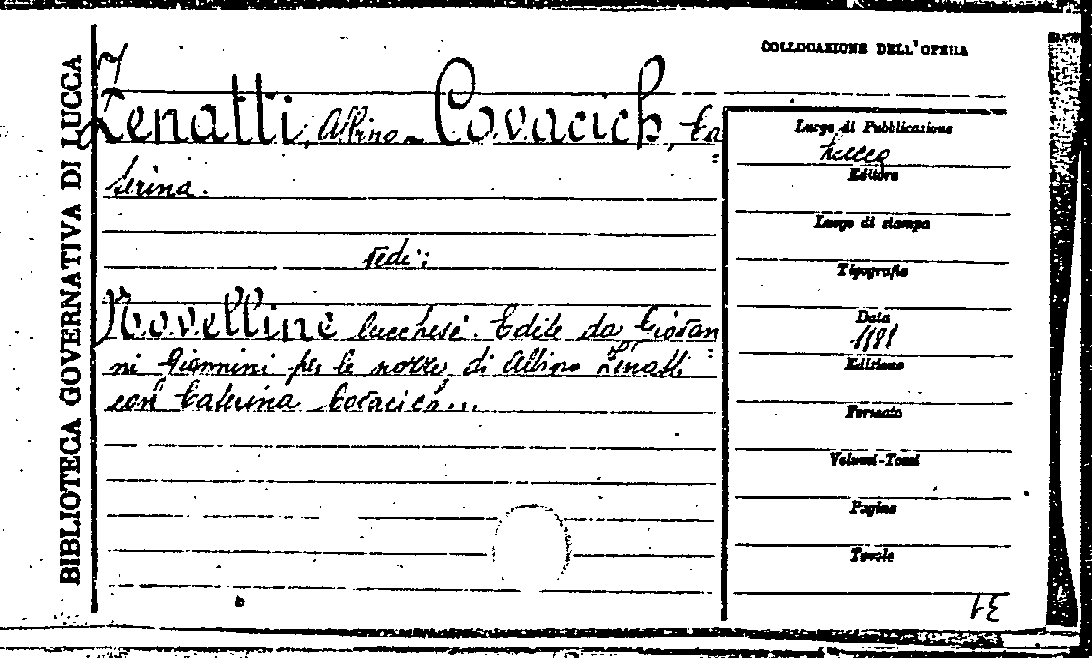 BIBLIOTECA GOVERNATIVA DI LUCCA
COLLOCAZIONE DELL'OPERA
Zenatti, Albino - Covacich, Ca
terina.
vedi:
Novelline lucchesi. Edite da Giovan
ni Giannini per le nozze di Albino Zenatti
con Caterina Covacich...
Luogo di Pubblicazione
Lucca
Editore
Luogo di stampa
Tipografia
Data
1888
Edizione
Formato
Volumi-Tomi
Pagine
Tavole